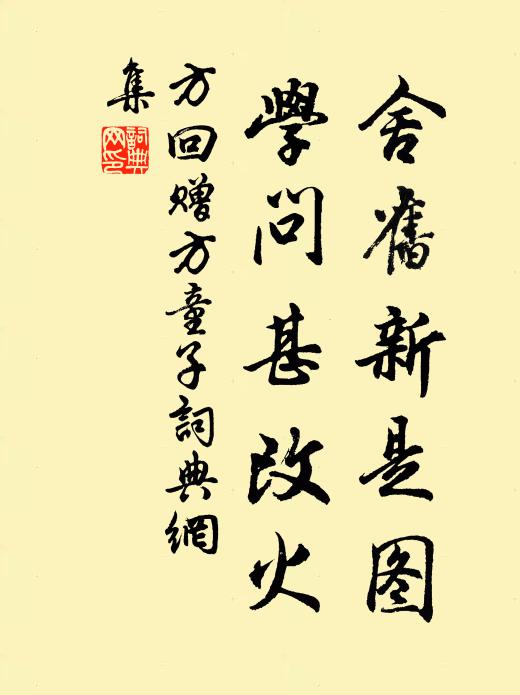 舍舊新是图
學問甚改火
方回赠方童子詞典網
集
詞典网印